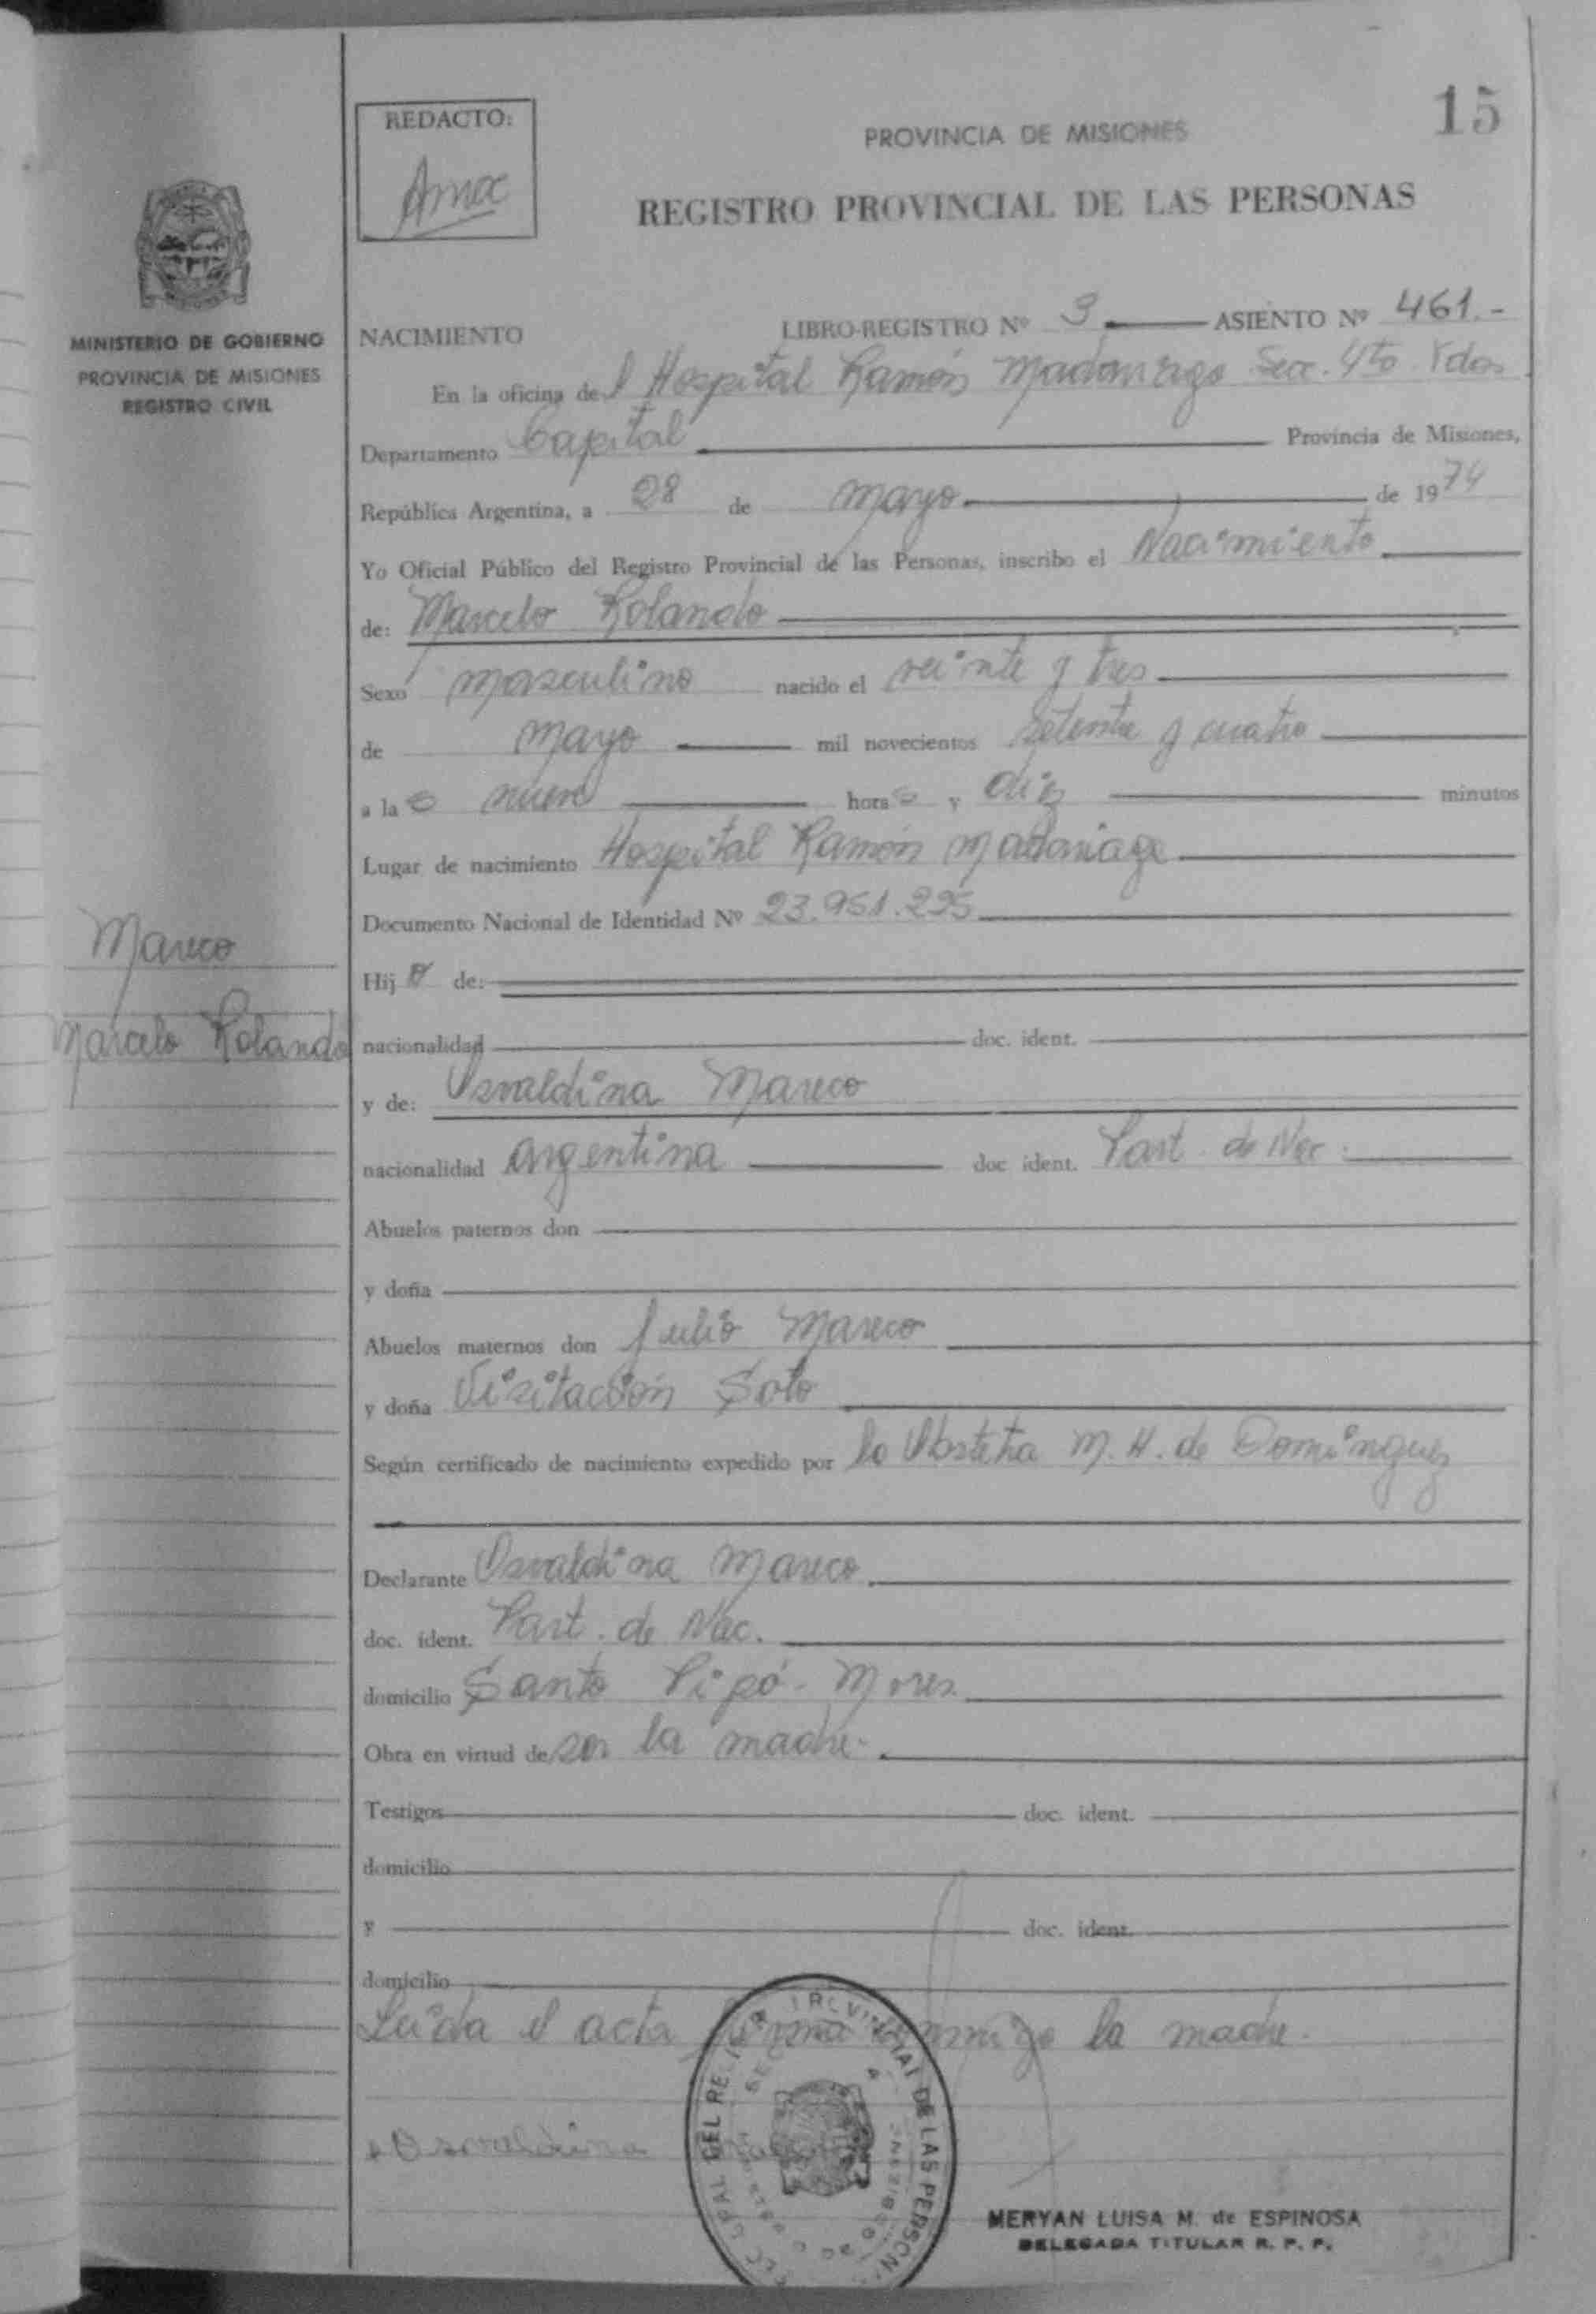 15
REDACTO:
PROVINCIA DE MISIONES
REGISTRO PROVINCIAL DE LAS PERSONAS
MINISTERIO DE GOBIERNO
PROVINCIA DE MISIONES
REGISTRO CIVIL
NACIMIENTO LIBRO-REGISTRO Nº 3 ASIENTO Nº 461.-
En la oficina del Hospital Ramón Madariaga Secc. 4to Pdas
Departamento Capital Provincia de Misiones,
República Argentina, a 28 de mayo de 1974
Yo Oficial Público del Registro Provincial de las Personas, inscribo el Nacimiento
de: Marcelo Rolando
Sexo masculino nacido el veinte y tres
de mayo mil novecientos setenta y cuatro
a las nueve horas y diez minutos
Lugar de nacimiento Hospital Ramón Madariaga
Documento Nacional de Identidad Nº 23.951.295
Mareco
Marcelo Rolando
Hijo de:
nacionalidad doc. ident.
y de: Osvaldina Mareco
nacionalidad argentina doc ident. Part. de Nac.
Abuelos paternos don
y doña
Abuelos maternos don Julio Mareco
y doña Visitación Soto
Según certificado de nacimiento expedido por la Obstetra M. H. de Dominguez
Declarante Osvaldina Mareco
doc. ident. Part. de Nac.
domicilio Santo Pipó - Mnes.
Obra en virtud de ser la madre.
Testigos doc. ident.
domicilio
y doc. ident.
domicilio
Leída el acta firma conmigo la madre.
Osvaldina
MERYAN LUISA M. de ESPINOSA
DELEGADA TITULAR R. P. P.